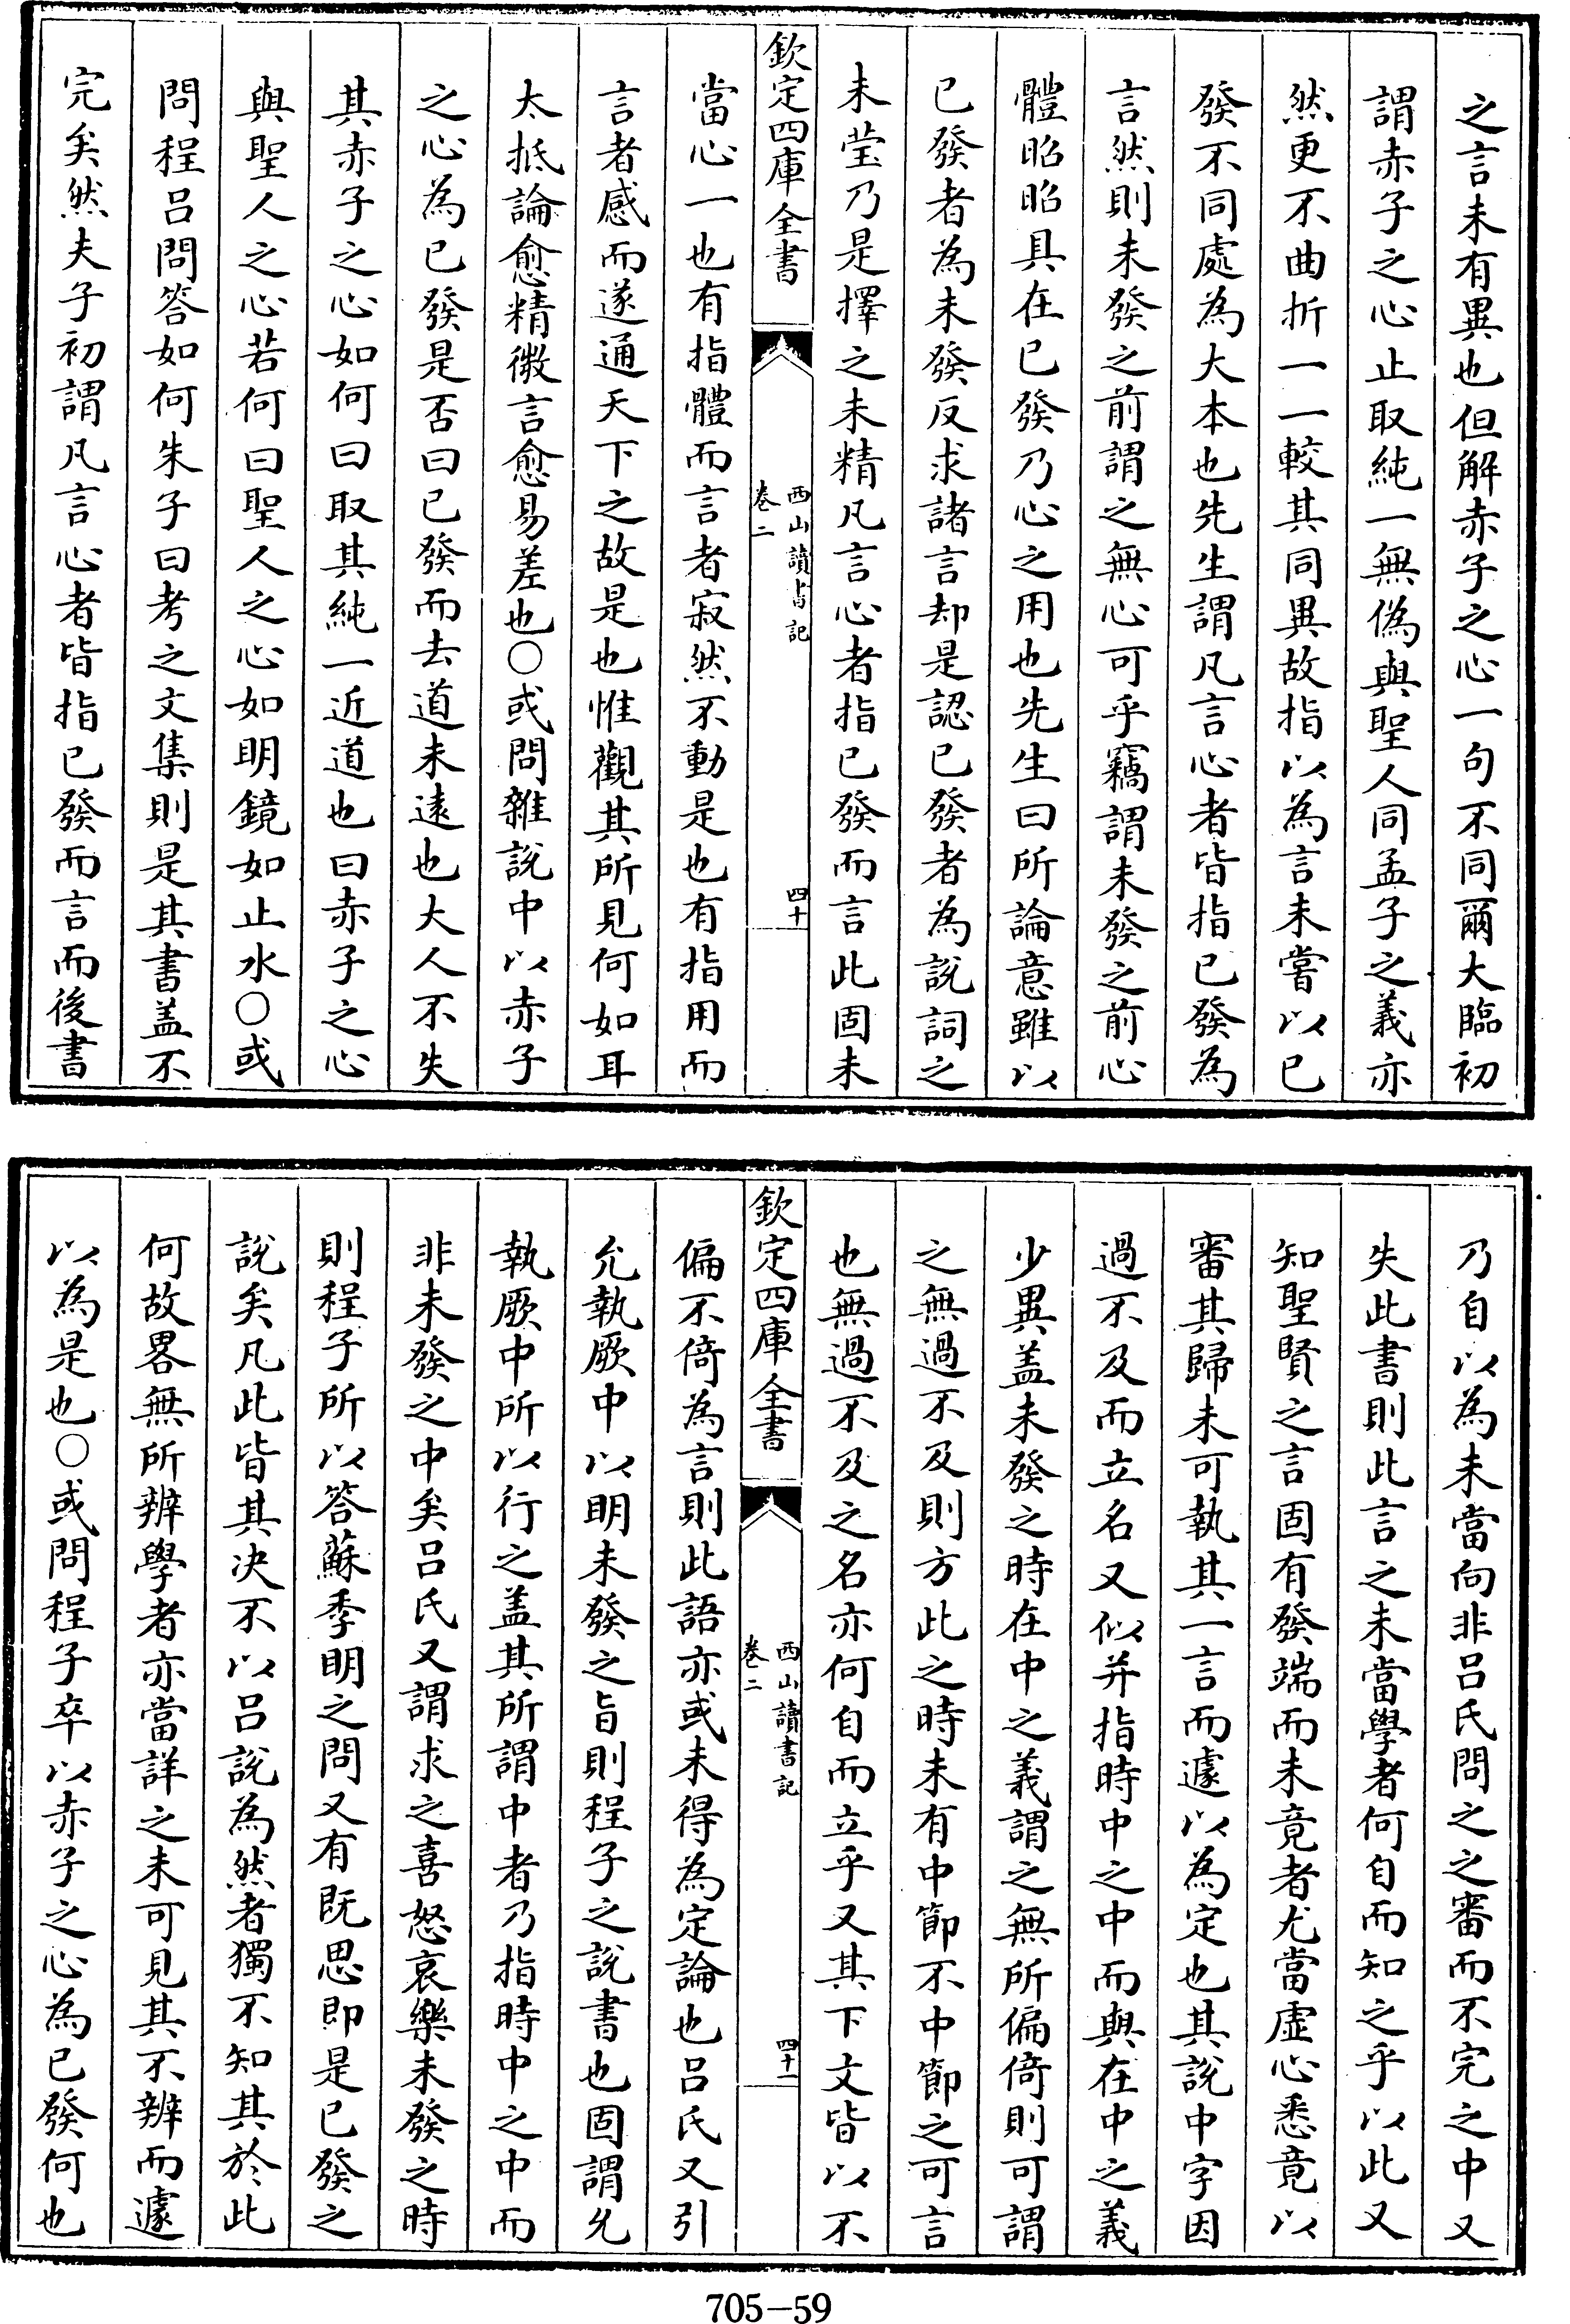 之言未有異也但解赤子之心一句不同爾大臨初
謂赤子之心止取純一無偽與聖人同孟子之義亦
然更不曲折一一較其同異故指以為言未嘗以已
發不同處為大本也先生謂凡言心者皆指已發為
言然則未發之前謂之無心可乎竊謂未發之前心
體昭昭具在已發乃心之用也先生曰所論意雖以
已發者為未發反求諸言却是認已發者為說詞之
未瑩乃是擇之未精凡言心者指已發而言此固未
欽定四庫全書
西山讀書記
卷二
四十
當心一也有指體而言者寂然不動是也有指用而
言者感而遂通天下之故是也惟觀其所見何如耳
大抵論愈精微言愈易差也○或問雜說中以赤子
之心為已發是否曰已發而去道未遠也大人不失
其赤子之心如何曰取其純一近道也曰赤子之心
與聖人之心若何曰聖人之心如明鏡如止水○或
問程呂問答如何朱子曰考之文集則是其書盖不
完矣然夫子初謂凡言心者皆指已發而言而後書
乃自以為未當向非呂氏問之之審而不完之中又
失此書則此言之未當學者何自而知之乎以此又
知聖賢之言固有發端而未竟者尤當虛心悉竟以
審其歸未可執其一言而遽以為定也其說中字因
過不及而立名又似并指時中之中而與在中之義
少異盖未發之時在中之義謂之無所偏倚則可謂
之無過不及則方此之時未有中節不中節之可言
也無過不及之名亦何自而立乎又其下文皆以不
欽定四庫全書
西山讀書記
卷二
四十一
偏不倚為言則此語亦或未得為定論也呂氏又引
允執厥中以明未發之旨則程子之說書也固謂允
執厥中所以行之盖其所謂中者乃指時中之中而
非未發之中矣呂氏又謂求之喜怒哀樂未發之時
則程子所以答蘇季明之問又有既思即是已發之
說矣凡此皆其决不以呂說為然者獨不知其於此
何故畧無所辨學者亦當詳之未可見其不辨而遽
以為是也○或問程子卒以赤子之心為已發何也
705-59